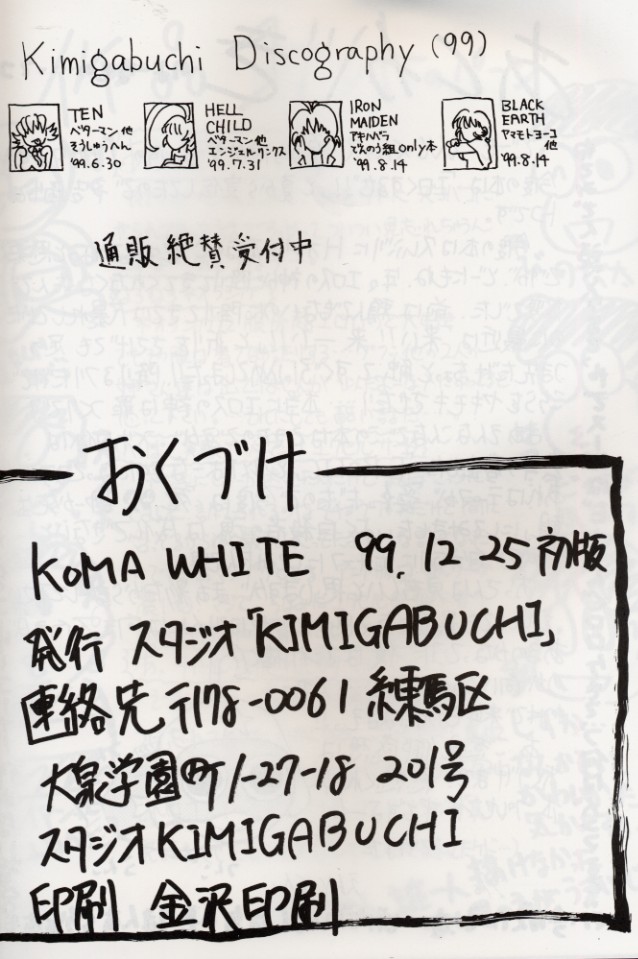 Kimigabuchi Discography (99)
TEN
ベターマン 他
そうしゅうへん
'99.6.30
HELL
CHILD
ベターマン他
エンジェルリンクス
'99.7.31
IRON
MAIDEN
アキハバラ
でんのう組only本
'99.8.14
BLACK
EARTH
ヤマモトヨーコ
他
'99.8.14
通販 絶賛 受付中
おくづけ
KOMA WHITE 99.12.25 初版
発行 スタジオ「KIMIGABUCHI」
連絡先 〒178-0061 練馬区
大泉学園町1-27-18 201号
スタジオ KIMIGABUCHI
印刷 金沢印刷